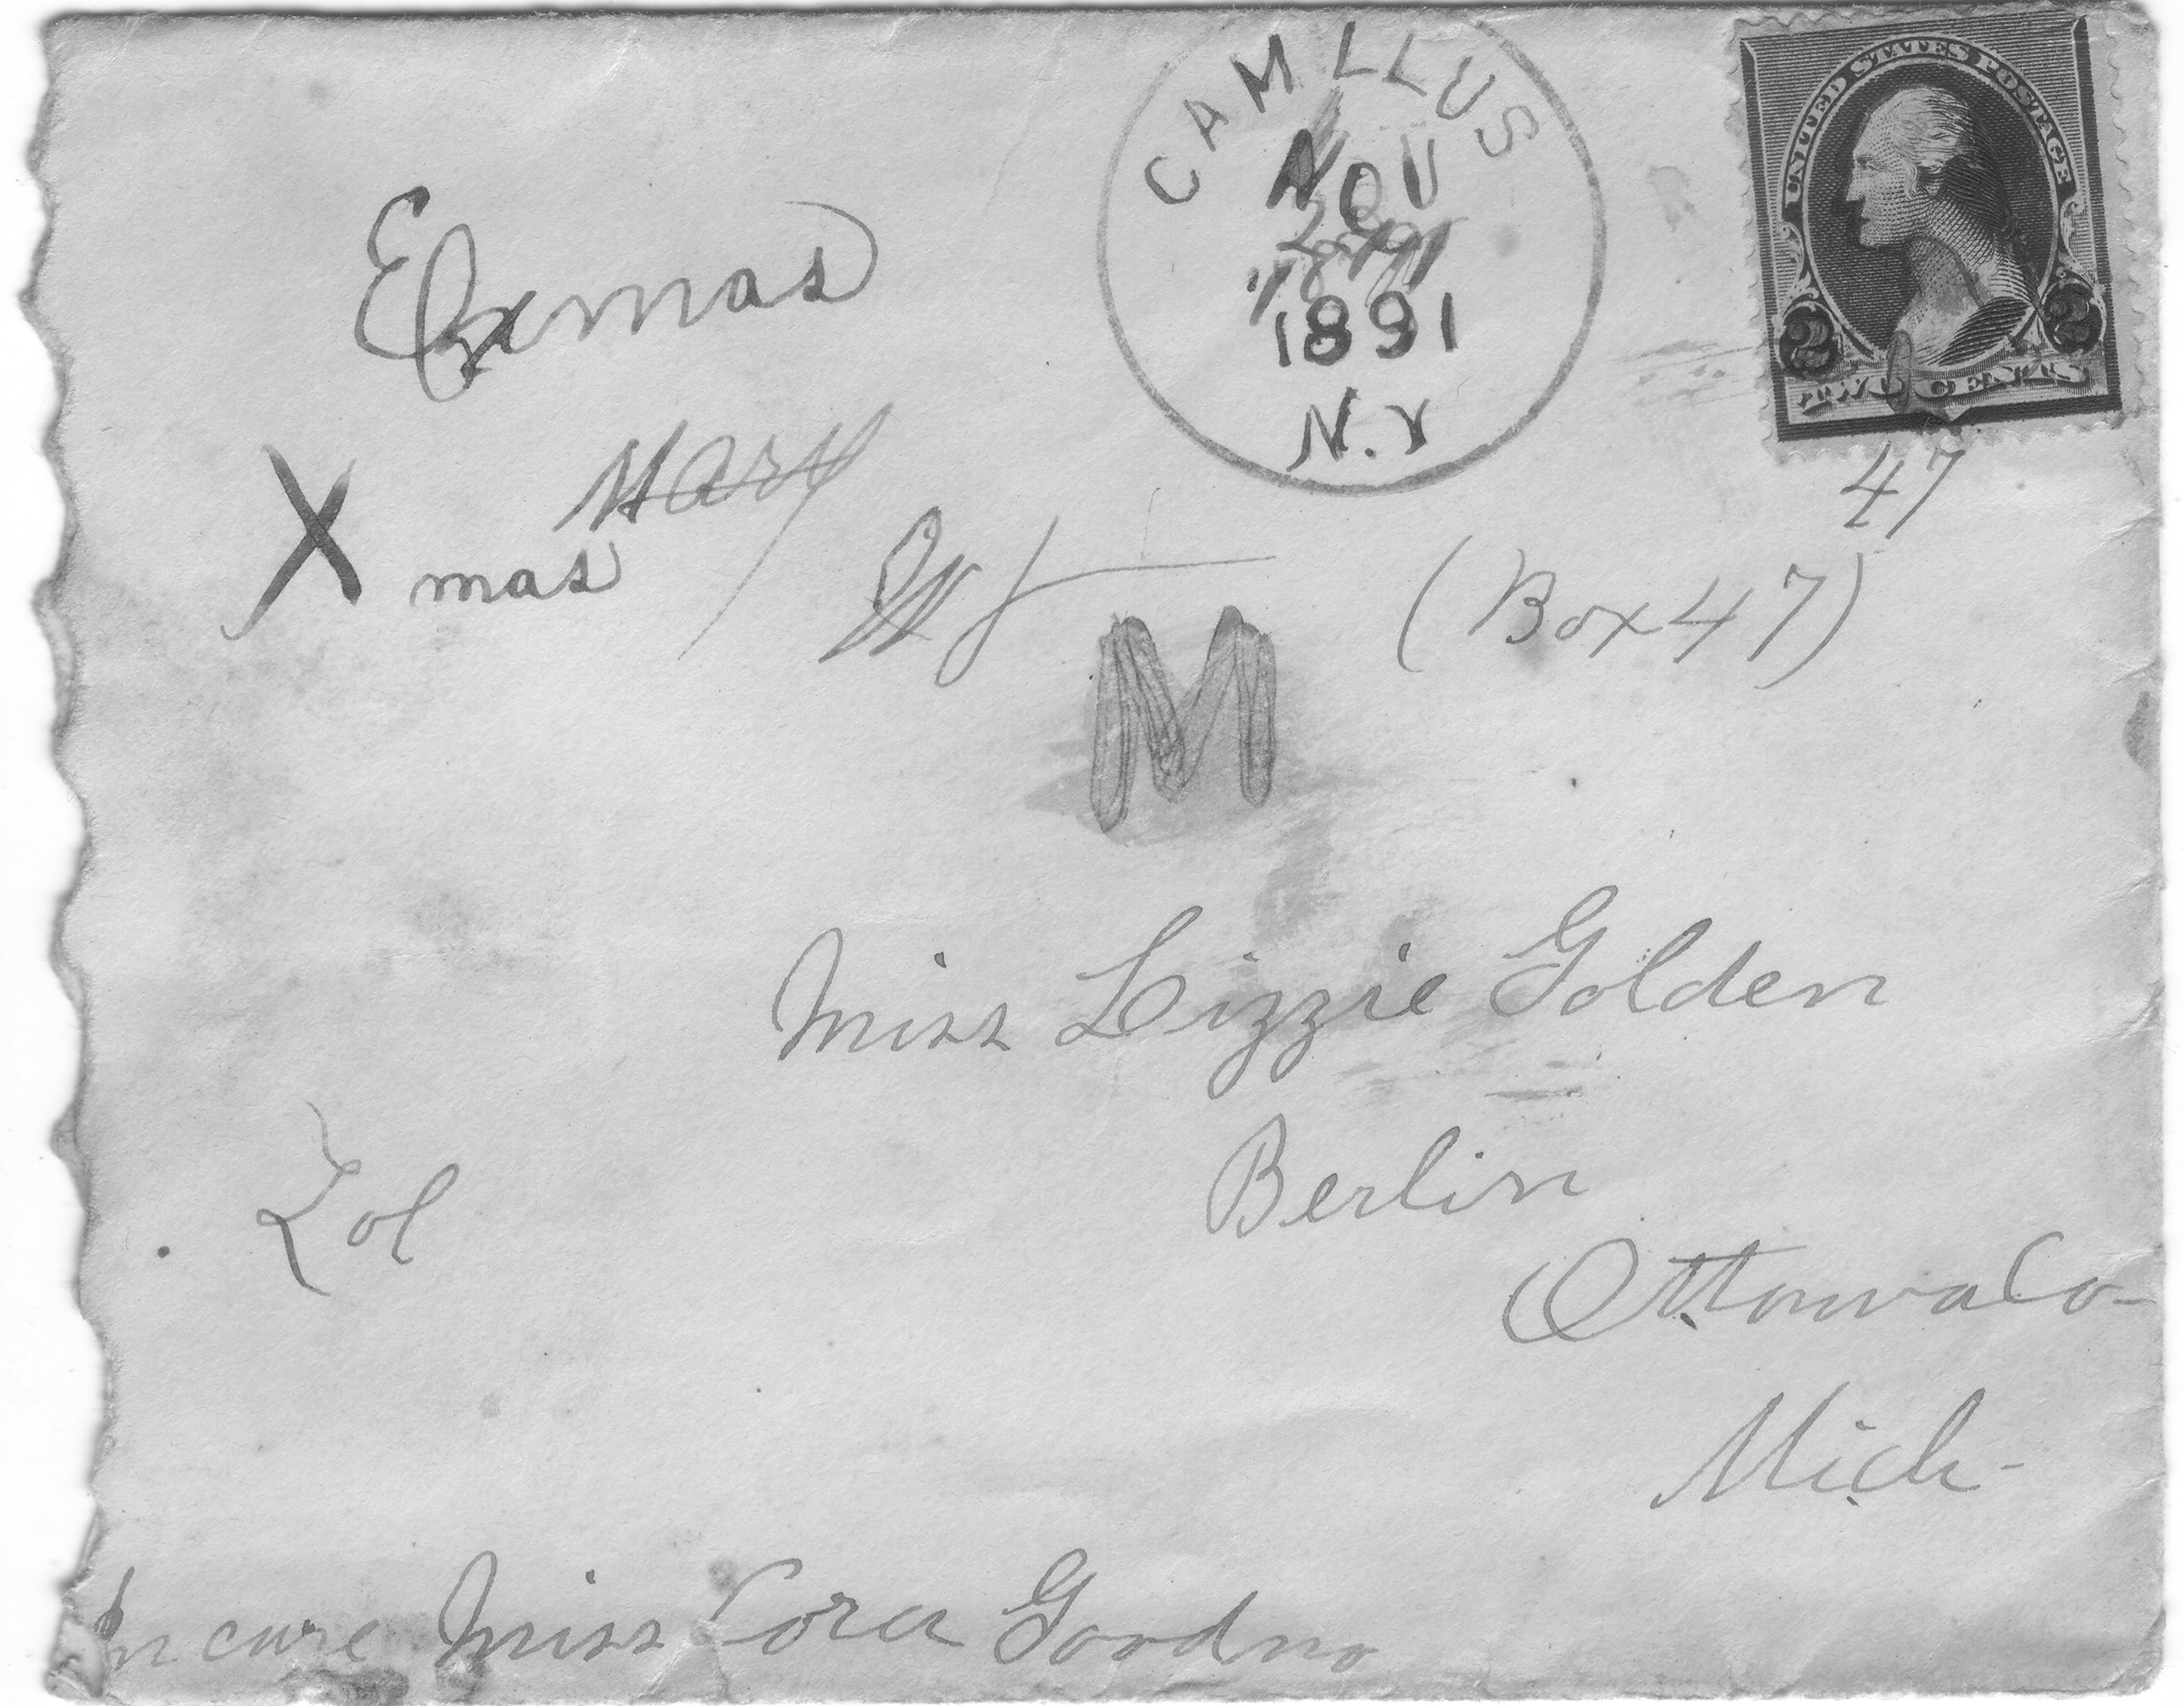 CAMILLUS
NOV
1891
N.Y
UNITED STATES POSTAGE
2 2
TWO CENTS
Exmas
47
Mary
X mas
(Box 47)
M
Miss Lizzie Golden
Berlin
Lol
Ottowa Co-
Mich-
In care Miss Cora Goodno